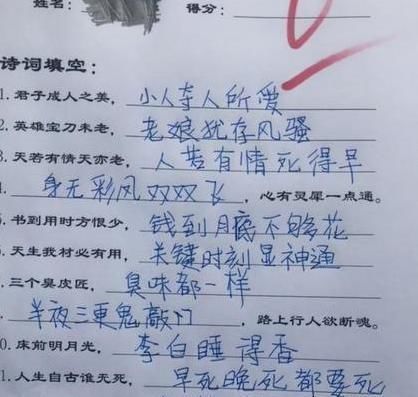 姓名： 得分：
诗词填空：
1. 君子成人之美，小人夺人所爱
2. 英雄宝刀未老，老娘犹存风骚
3. 天若有情天亦老，人若有情死得早
身无彩风双双飞，心有灵犀一点通。
书到用时方恨少，钱到月底不够花
天生我材必有用，关键时刻显神通
三个臭皮匠，臭味都一样
半夜三更鬼敲门，路上行人欲断魂。
0. 床前明月光，李白睡得香
1. 人生自古谁无死，早死晚死都要死